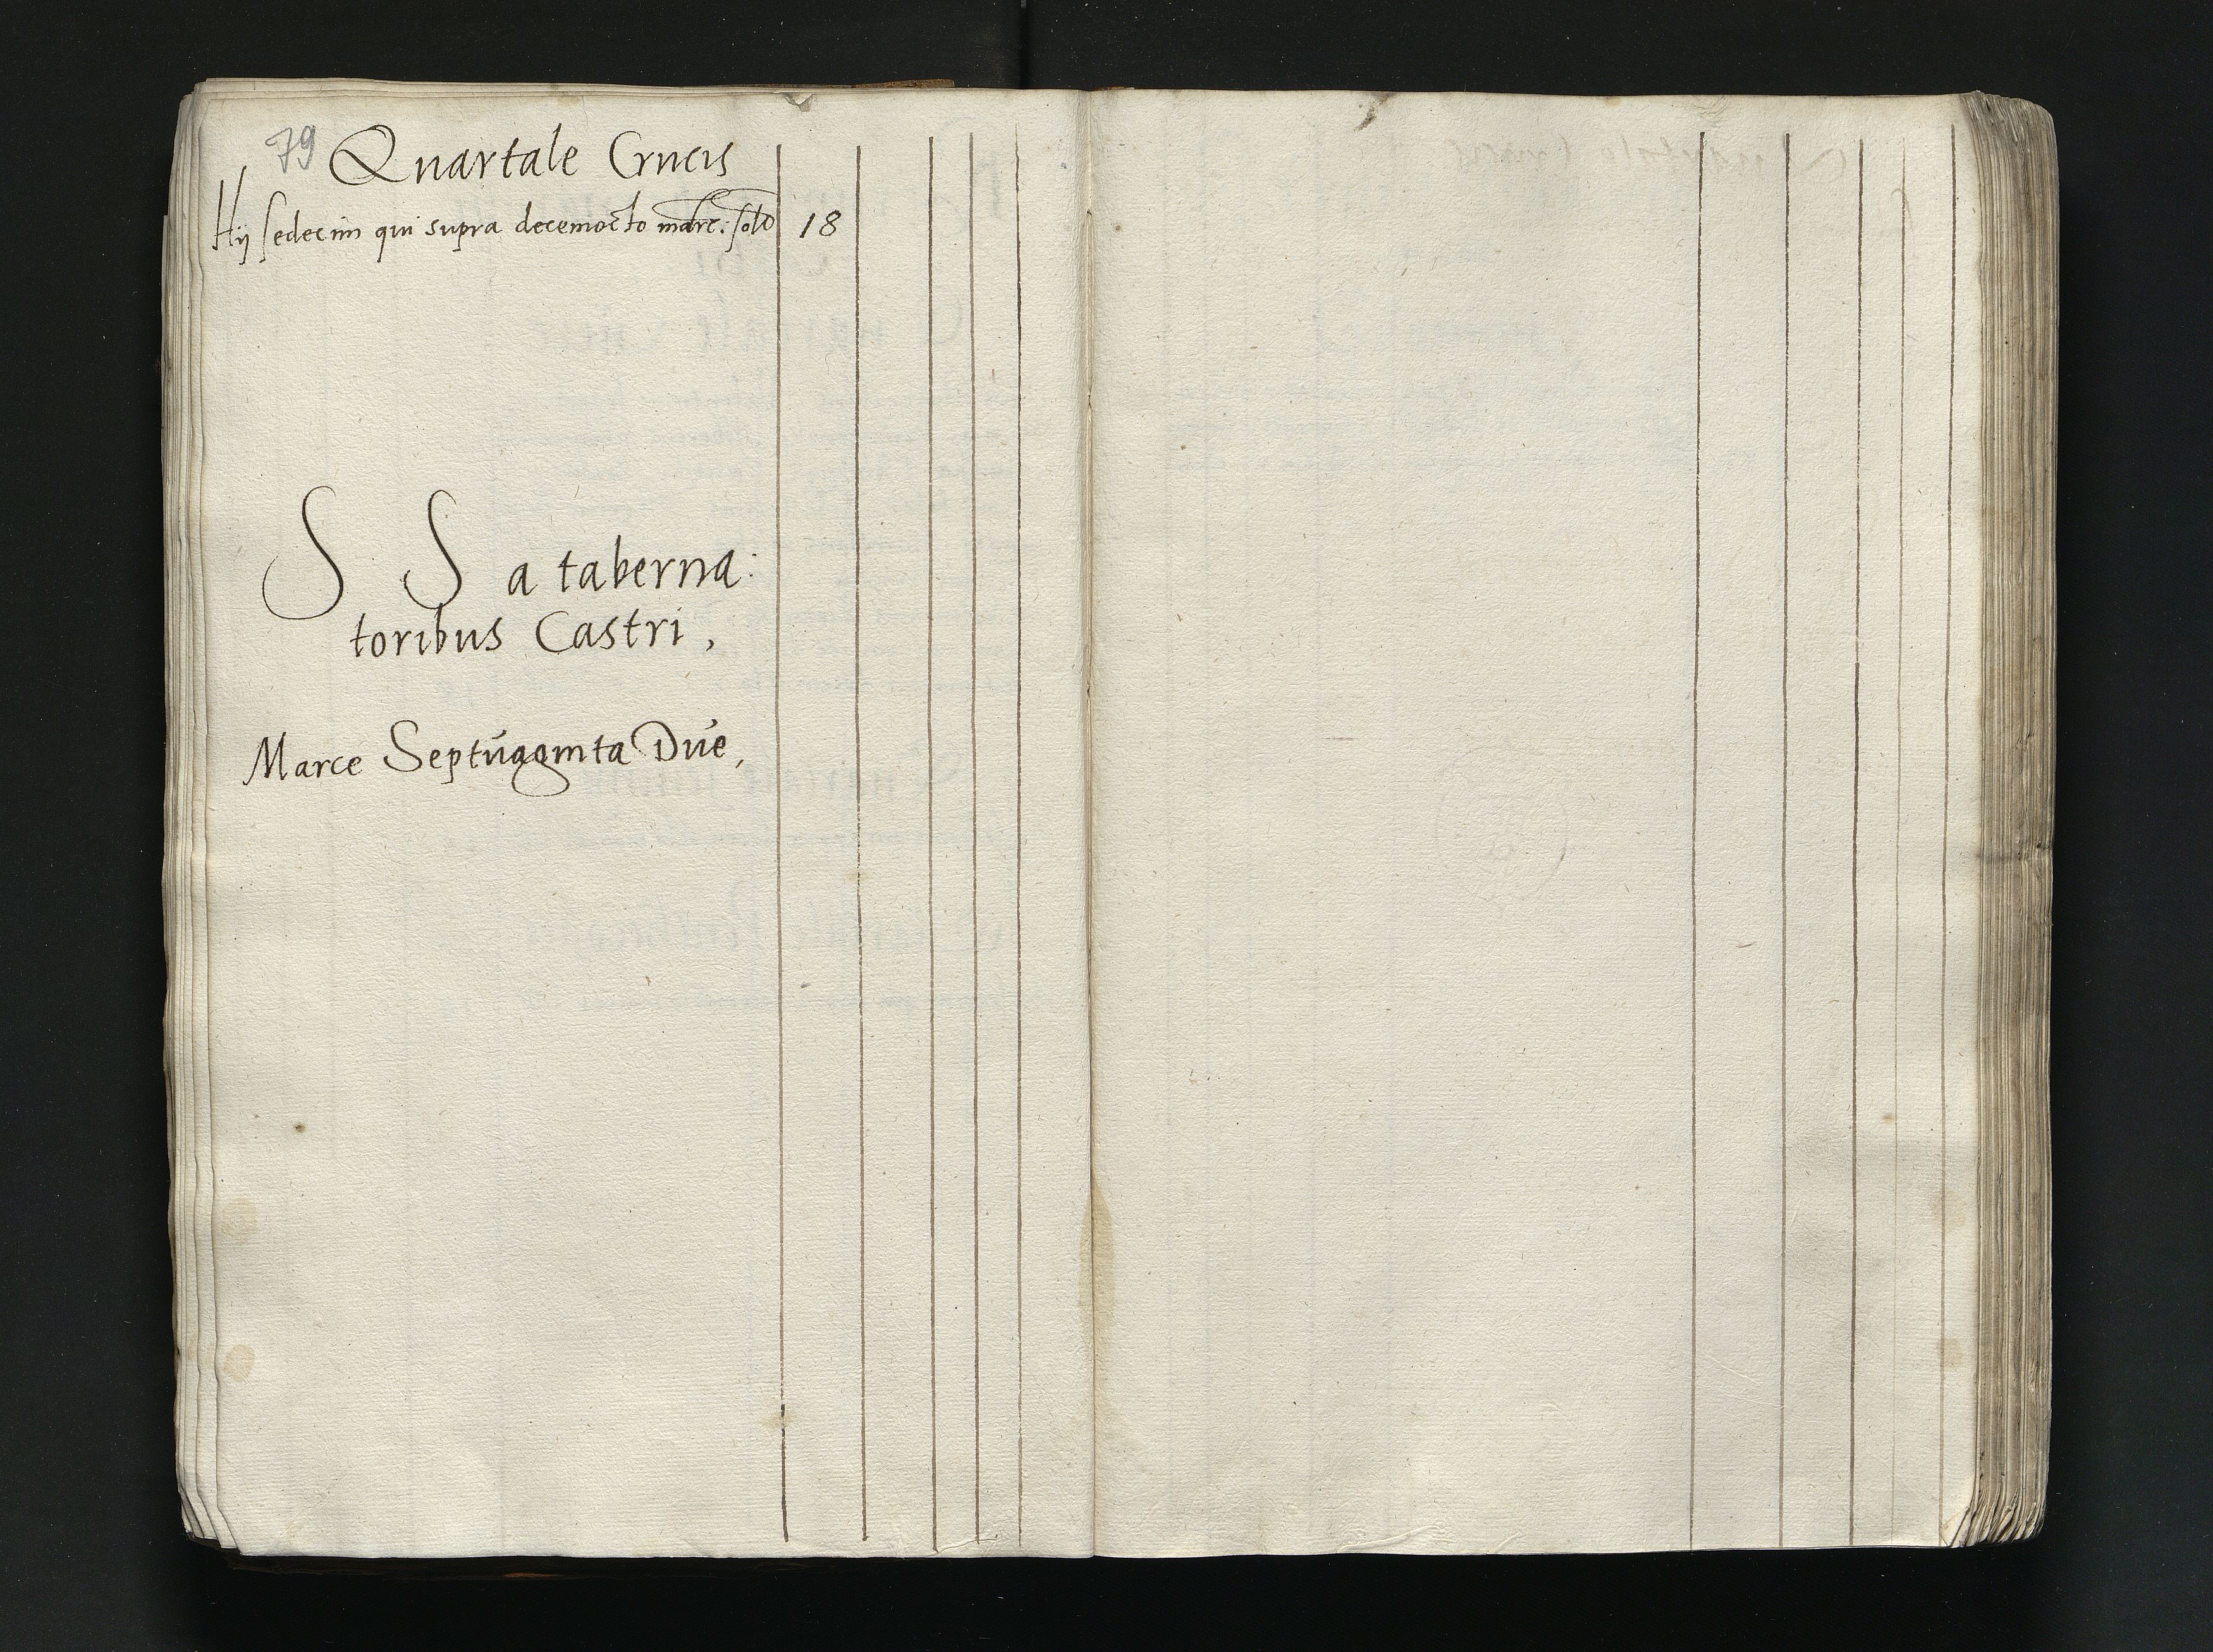 79 Quartale Crucis
Hij sedecim qui supra decemocto marc: sold 18
S S a taberna:
toribus Castri,
Marce Septuaginta Due,